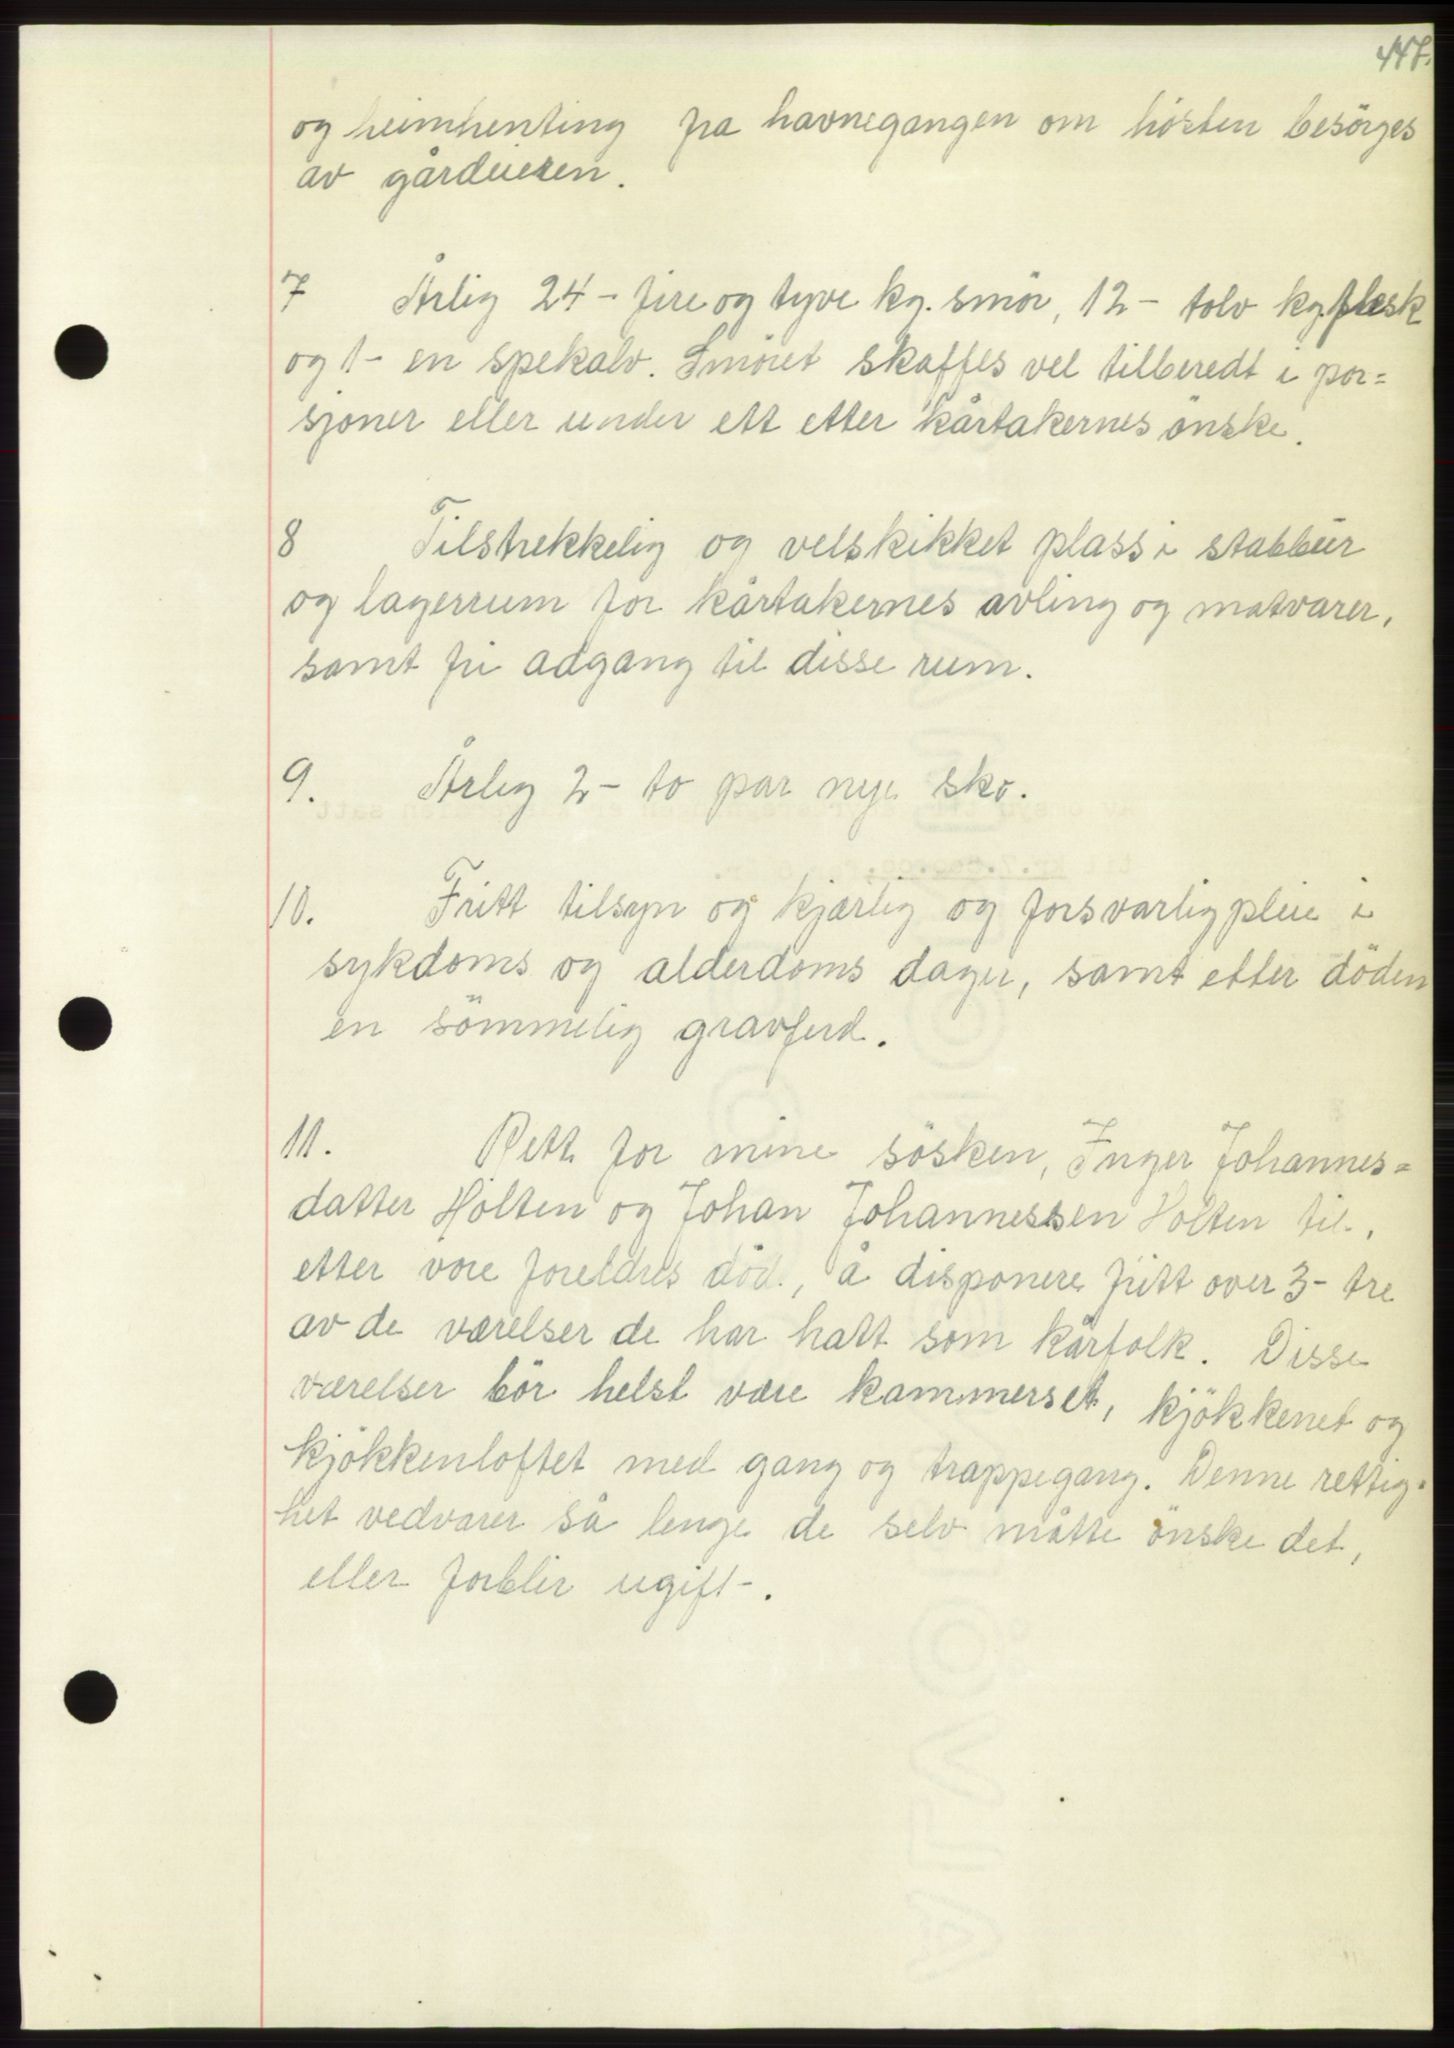 447.
og heimhenting fra havnegangen om hösten besörges
av gårdeieren.
7 Årlig 24 - fire og tyve kg. smör, 12 - tolv kg. flesk
og 1 - en spekalv. Smöret skaffes vel tilberedt i por=
sjoner eller under ett etter kårtakernes önske.
8 Tilstrekkelig og velskikket plass i stabbur
og lagerrum for kårtakernes avling og matvarer,
samt fri adgang til disse rum.
9. Årlig 2 - to par nye sko.
10. Fritt tilsyn og kjærlig og forsvarlig pleie i
sykdoms og alderdoms dager, samt etter döden
en sömmelig gravferd.
11. Rett for mine sösken, Inger Johannes=
datter Holten og Johan Johannessen Holten til,
etter vore foreldres död, å disponere fritt over 3 - tre
av de værelser de har hatt som kårfolk. Disse
værelser bör helst være kammerset, kjökkenet og
kjökkenloftet med gang og trappegang. Denne rettig-
het vedvarer så lenge de selv måtte önske det,
eller forblir ugift -.